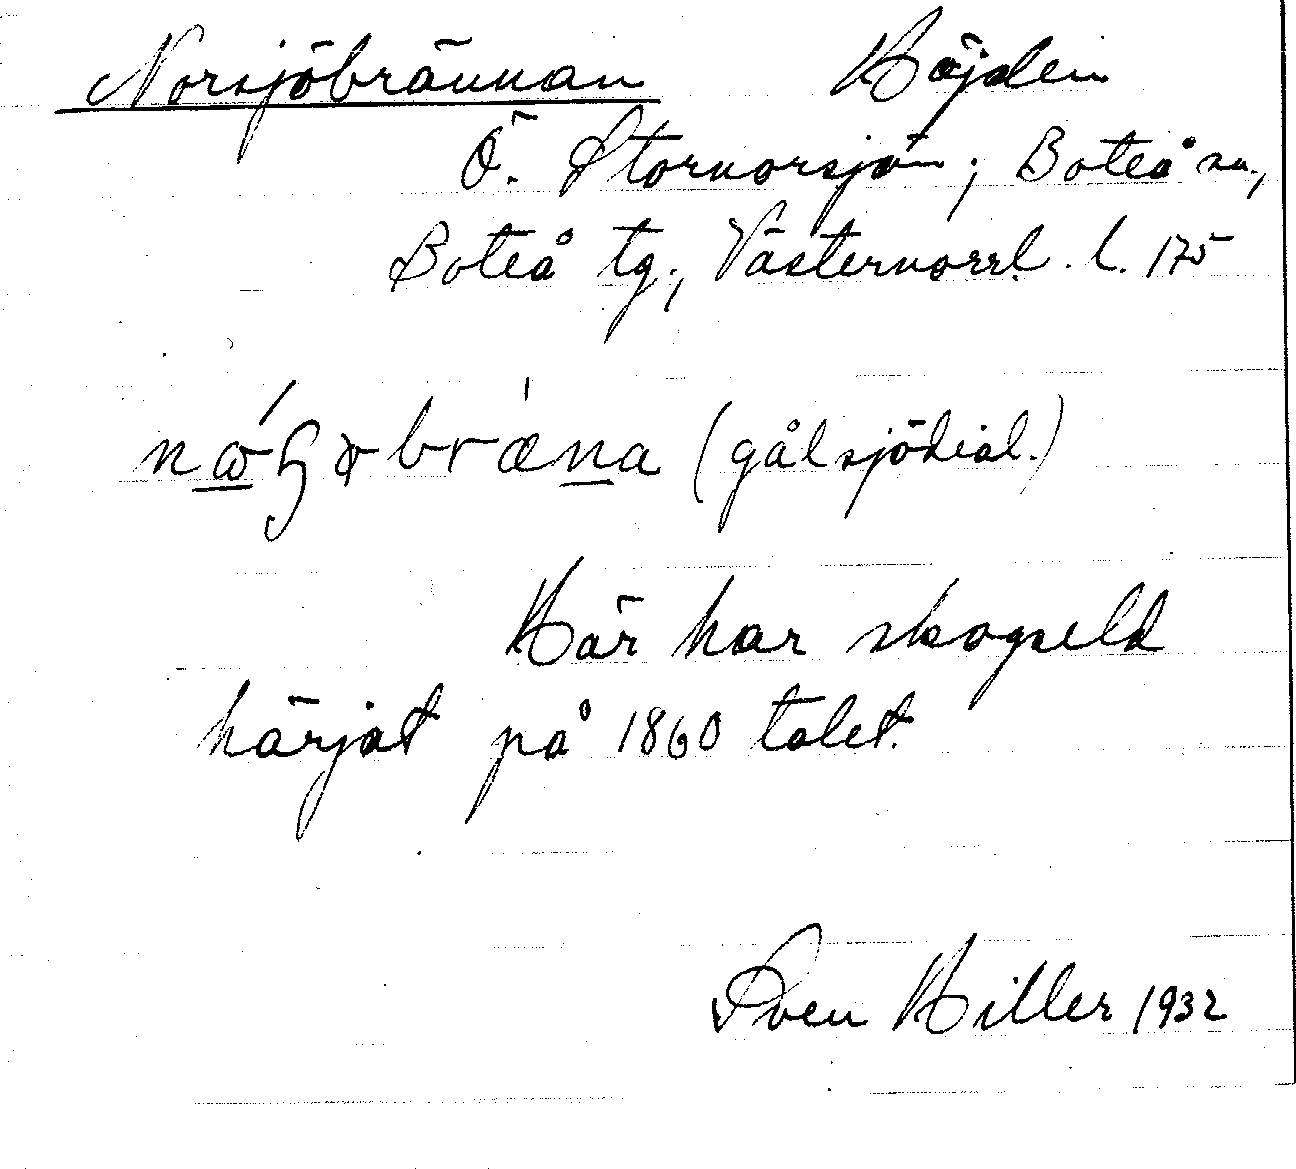 Norsjöbrännan Höjden
Ö. Stornorsjön; Boteå sn.,
Boteå tg., Västernorrl. l. 175
(gålsjödial.)
Här har skogseld
härjat på 1860 talet.
Sven Hiller 1932